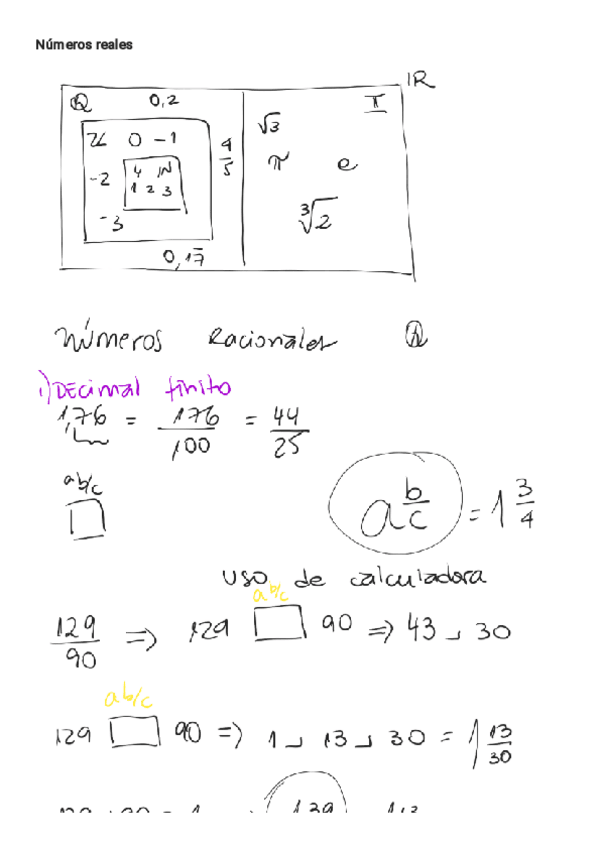 Números reales
IR
Q 0,2 π
√3
Z 0 -1 4/5
π e
-2 4 IN
1 2 3
∛2
-3
0,17̄
Números Racionales Q
i) Decimal finito
1,76 = 176/100 = 44/25
ab/c
a b/c = 1 3/4
uso de calculadora
ab/c
129/90 => 129 □ 90 => 43 ⌟ 30
ab/c
129 □ 90 => 1 ⌟ 13 ⌟ 30 = 1 13/30